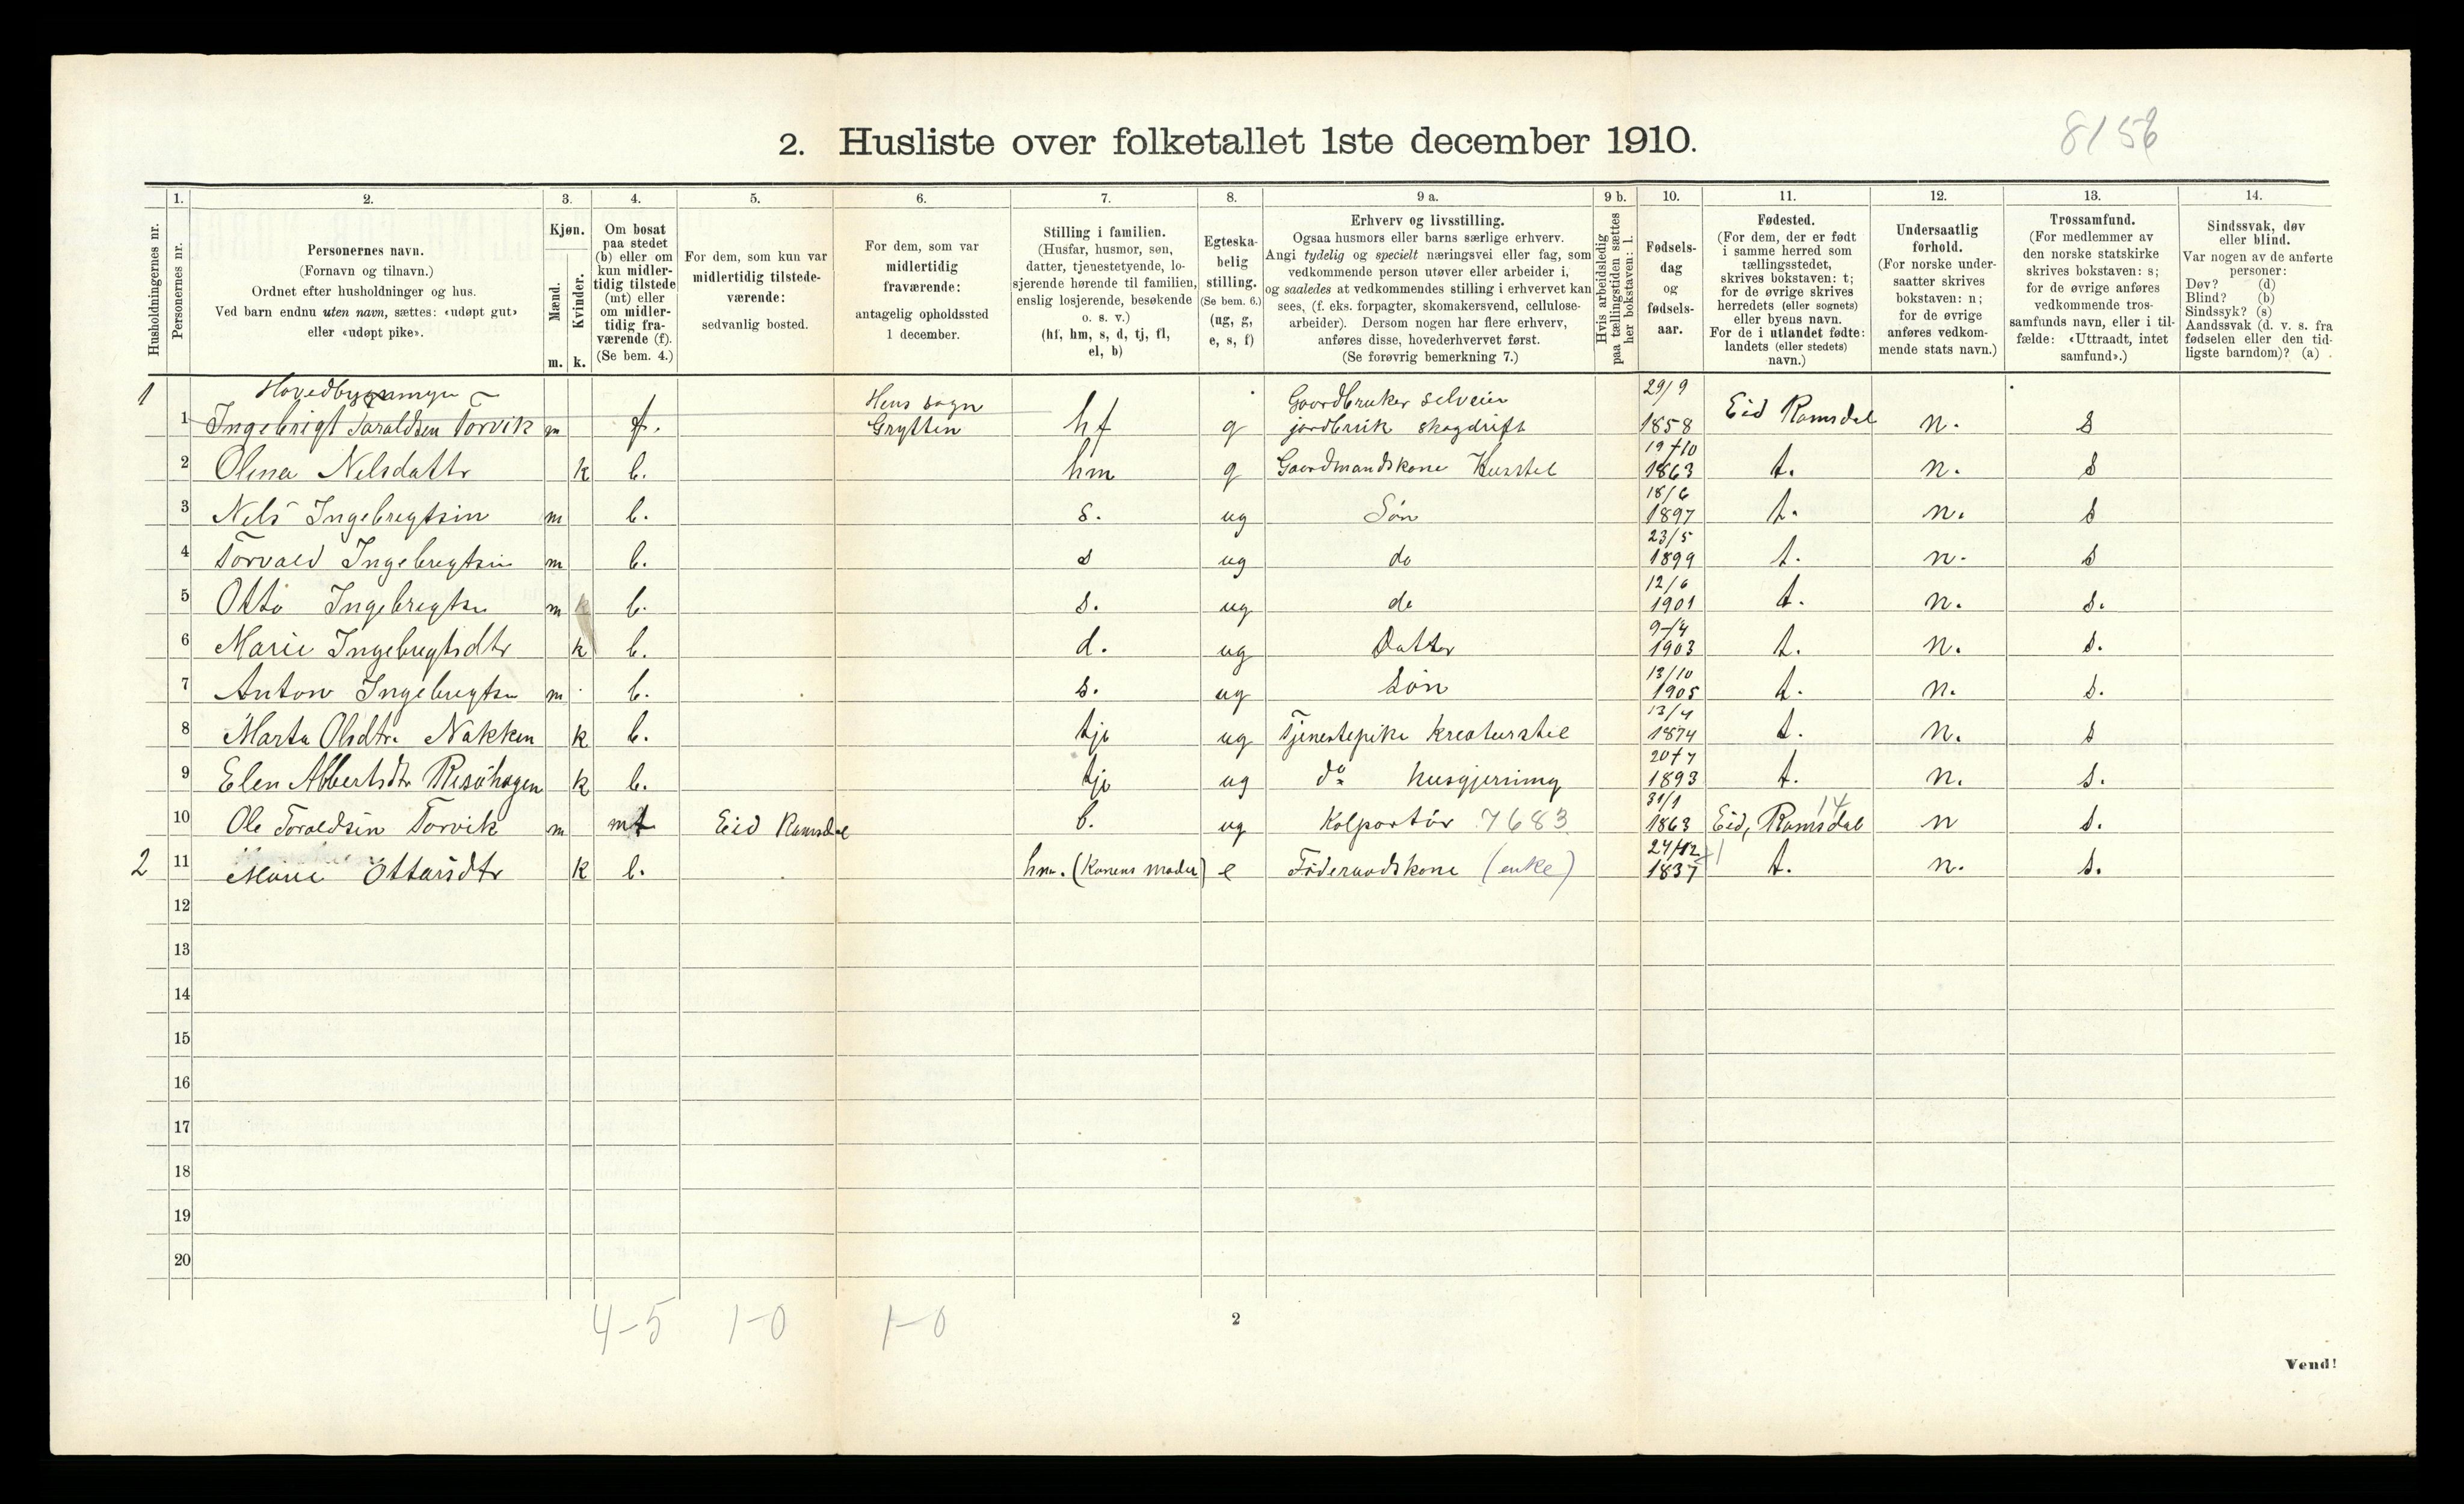 8156
2. Husliste over folketallet 1ste december 1910.
1. 2. 3. 4. 5. 6. 7. 8. 9 a. 9 b. 10. 11. 12. 13. 14.
Husholdningernes nr.
Personernes nr.
Personernes navn.
(Fornavn og tilnavn.)
Ordnet efter husholdninger og hus.
Ved barn endnu uten navn, sættes: «udøpt gut»
eller «udøpt pike».
Kjøn.
Mænd.
Kvinder.
m. k.
Om bosat
paa stedet
(b) eller om
kun midler-
tidig tilstede
(mt) eller
om midler-
tidig fra-
værende (f).
(Se bem. 4.)
For dem, som kun var
midlertidig tilstede-
værende:
sedvanlig bosted.
For dem, som var
midlertidig
fraværende:
antagelig opholdssted
1 december.
Stilling i familien.
(Husfar, husmor, søn,
datter, tjenestetyende, lo-
sjerende hørende til familien,
enslig losjerende, besøkende
o. s. v.)
(hf, hm, s, d, tj, fl,
el, b)
Egteska-
belig
stilling.
(Se bem. 6.)
(ug, g,
e, s, f)
Erhverv og livsstilling.
Ogsaa husmors eller barns særlige erhverv.
Angi tydelig og specielt næringsvei eller fag, som
vedkommende person utøver eller arbeider i,
og saaledes at vedkommendes stilling i erhvervet kan
sees, (f. eks. forpagter, skomakersvend, cellulose-
arbeider). Dersom nogen har flere erhverv,
anføres disse, hovederhvervet først.
(Se forøvrig bemerkning 7.)
Hvis arbeidsledig
paa tællingstiden sættes
her bokstaven: l.
Fødsels-
dag
og
fødsels-
aar.
Fødested.
(For dem, der er født
i samme herred som
tællingsstedet,
skrives bokstaven: t;
for de øvrige skrives
herredets (eller sognets)
eller byens navn.
For de i utlandet fødte:
landets (eller stedets)
navn.)
Undersaatlig
forhold.
(For norske under-
saatter skrives
bokstaven: n;
for de øvrige
anføres vedkom-
mende stats navn.)
Trossamfund.
(For medlemmer av
den norske statskirke
skrives bokstaven: s;
for de øvrige anføres
vedkommende tros-
samfunds navn, eller i til-
fælde: «Uttraadt, intet
samfund».)
Sindssvak, døv
eller blind.
Var nogen av de anførte
personer:
Døv? (d)
Blind? (b)
Sindssyk? (s)
Aandssvak (d. v. s. fra
fødselen eller den tid-
ligste barndom)? (a)
1 Hovedbygningen Hens sogn Gaardbruker selveier 29/9
1 Ingebrigt Taraldsen Torvik m f. Grytten hf g jordbruk skogdrift 1858 Eid Romsdal n. s
19/10
2 Olena Nelsdattr k b. hm g Gaardmandskone Husstel 1863 t. n. s
18/6
3 Nels Ingebregtsen m b. s. ug Søn 1897 t. n. s
23/5
4 Torvald Ingebregtsen m b. s ug do 1899 t. n. s
12/6
5 Otto Ingebregtsn m b. s. ug do 1901 t. n. s.
9/4
6 Marie Ingebregtsdtr k b. d. ug Datter 1903 t. n. s.
13/10
7 Anton Ingebregtsn m b. s. ug Søn 1905 t. n. s.
13/4
8 Marta Olsdtr. Nakken k b. tje ug Tjenestepike kreaturstel 1874 t. n. s
20/7
9 Elen Albertsdtr Risøhagen k b. tje ug do husgjerning 1893 t. n. s.
31/1 14
10 Ole Toraldsen Torvik m mt Eid Romsdal b. ug Kolportør 7683 1863 Eid, Romsdal n s.
24/12
2 11 Marie Ottarsdtr k b. hm. (Konens moder) e Føderaadskone (enke) 1837 t. n. s.
12
13
14
15
16
17
18
19
20
4-5 1-0 1-0
2
Vend!